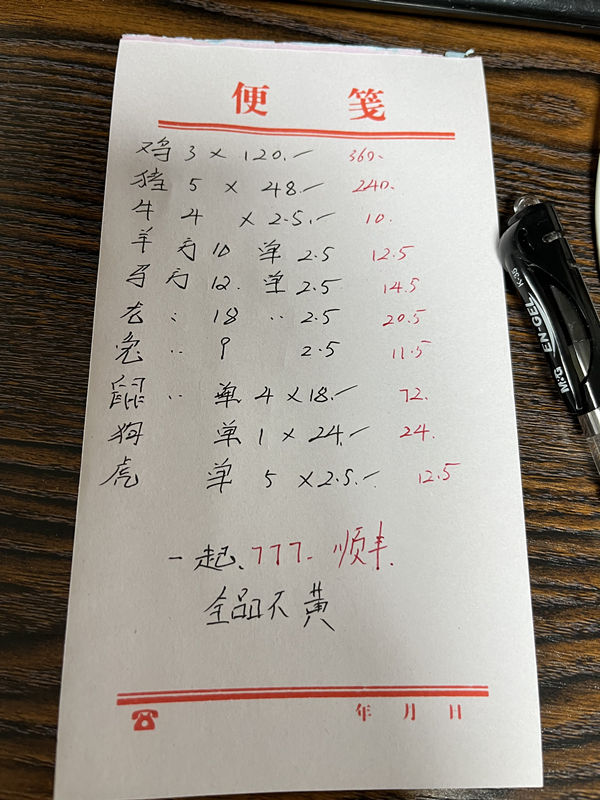 便 笺
鸡 3 × 120.- 360.
猪 5 × 48.- 240.
牛 4 × 2.5.- 10.
羊 方 10 单 2.5 12.5
马 方 12. 单 2.5 14.5
龙 〃 18 〃 2.5 20.5
兔 〃 9 2.5 11.5
鼠 〃 单 4 × 18.- 72.
狗 单 1 × 24.- 24.
虎 单 5 × 2.5.- 12.5
一起、777. 顺丰.
全品不黄
年 月 日
M&G EN-GEL K-35